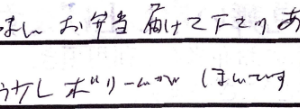 ません お弁当 届けて下さり あ
う少し ボリームが ほしいです